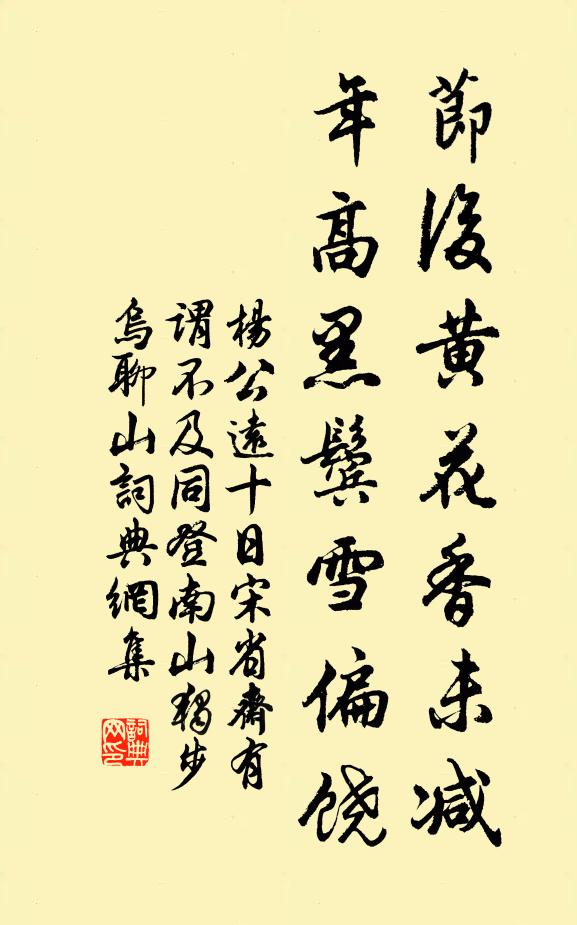 節後黄花香未减
年高黑鬓雪偏饶
楊公遠十日宋省齋有
谓不及同登南山獨步
烏聊山詞典網集
詞典网印